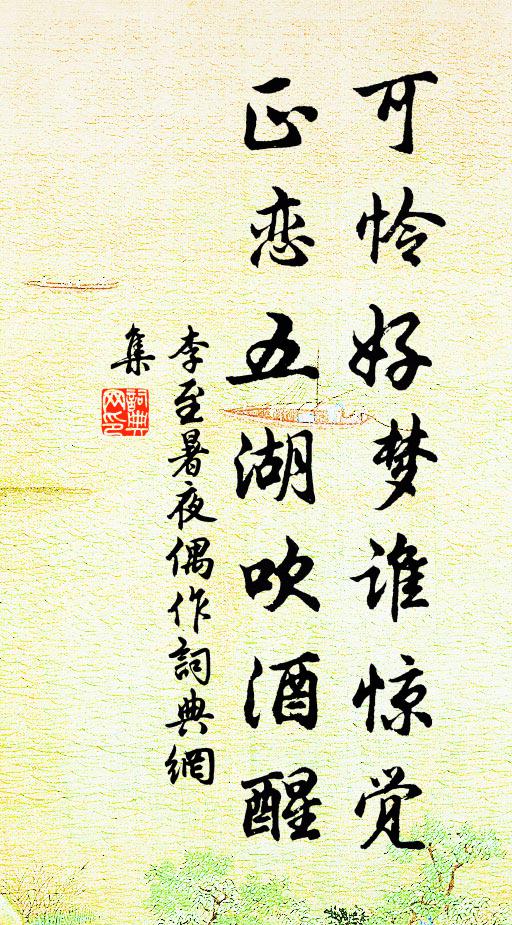 可怜好梦谁惊觉
正恋五湖吹酒醒
李至暑夜偶作詞典網
集
詞典网印